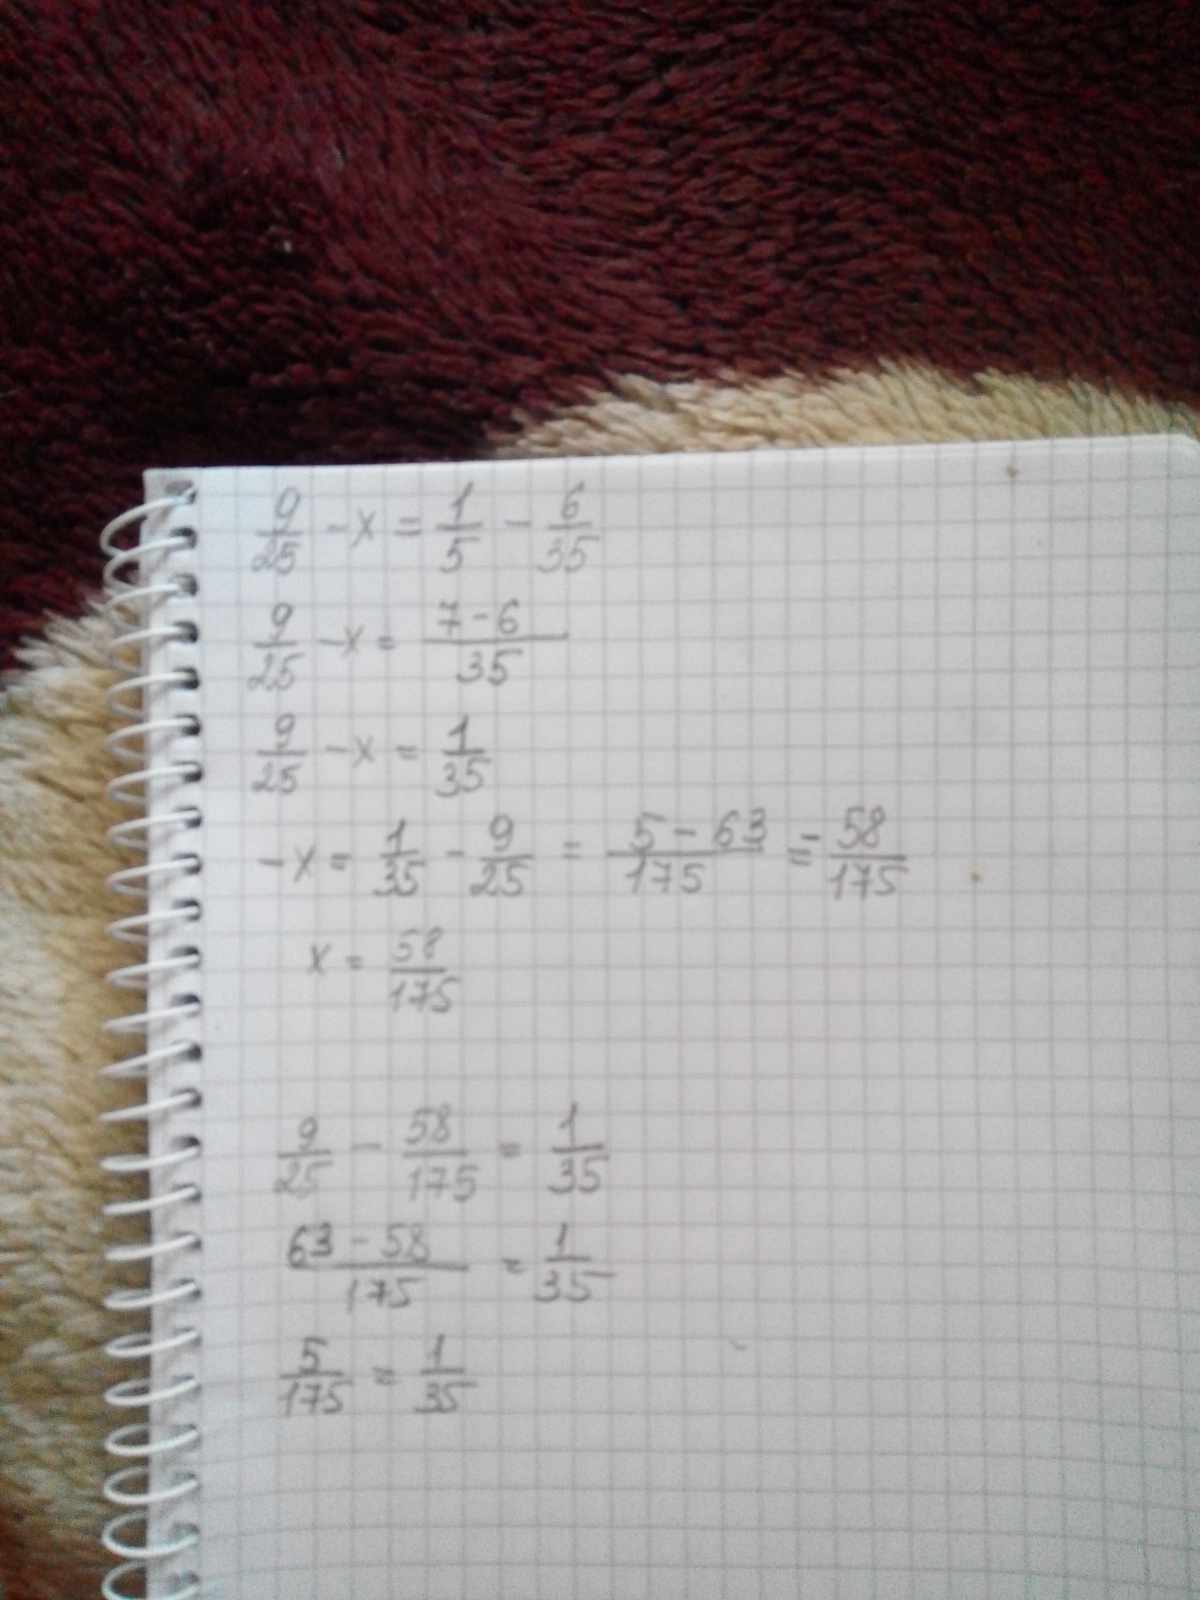 9/25 - x = 1/5 - 6/35
9/25 - x = (7 - 6)/35
9/25 - x = 1/35
- x = 1/35 - 9/25 = (5 - 63)/175 = - 58/175
x = 58/175
9/25 - 58/175 = 1/35
(63 - 58)/175 = 1/35
5/175 = 1/35